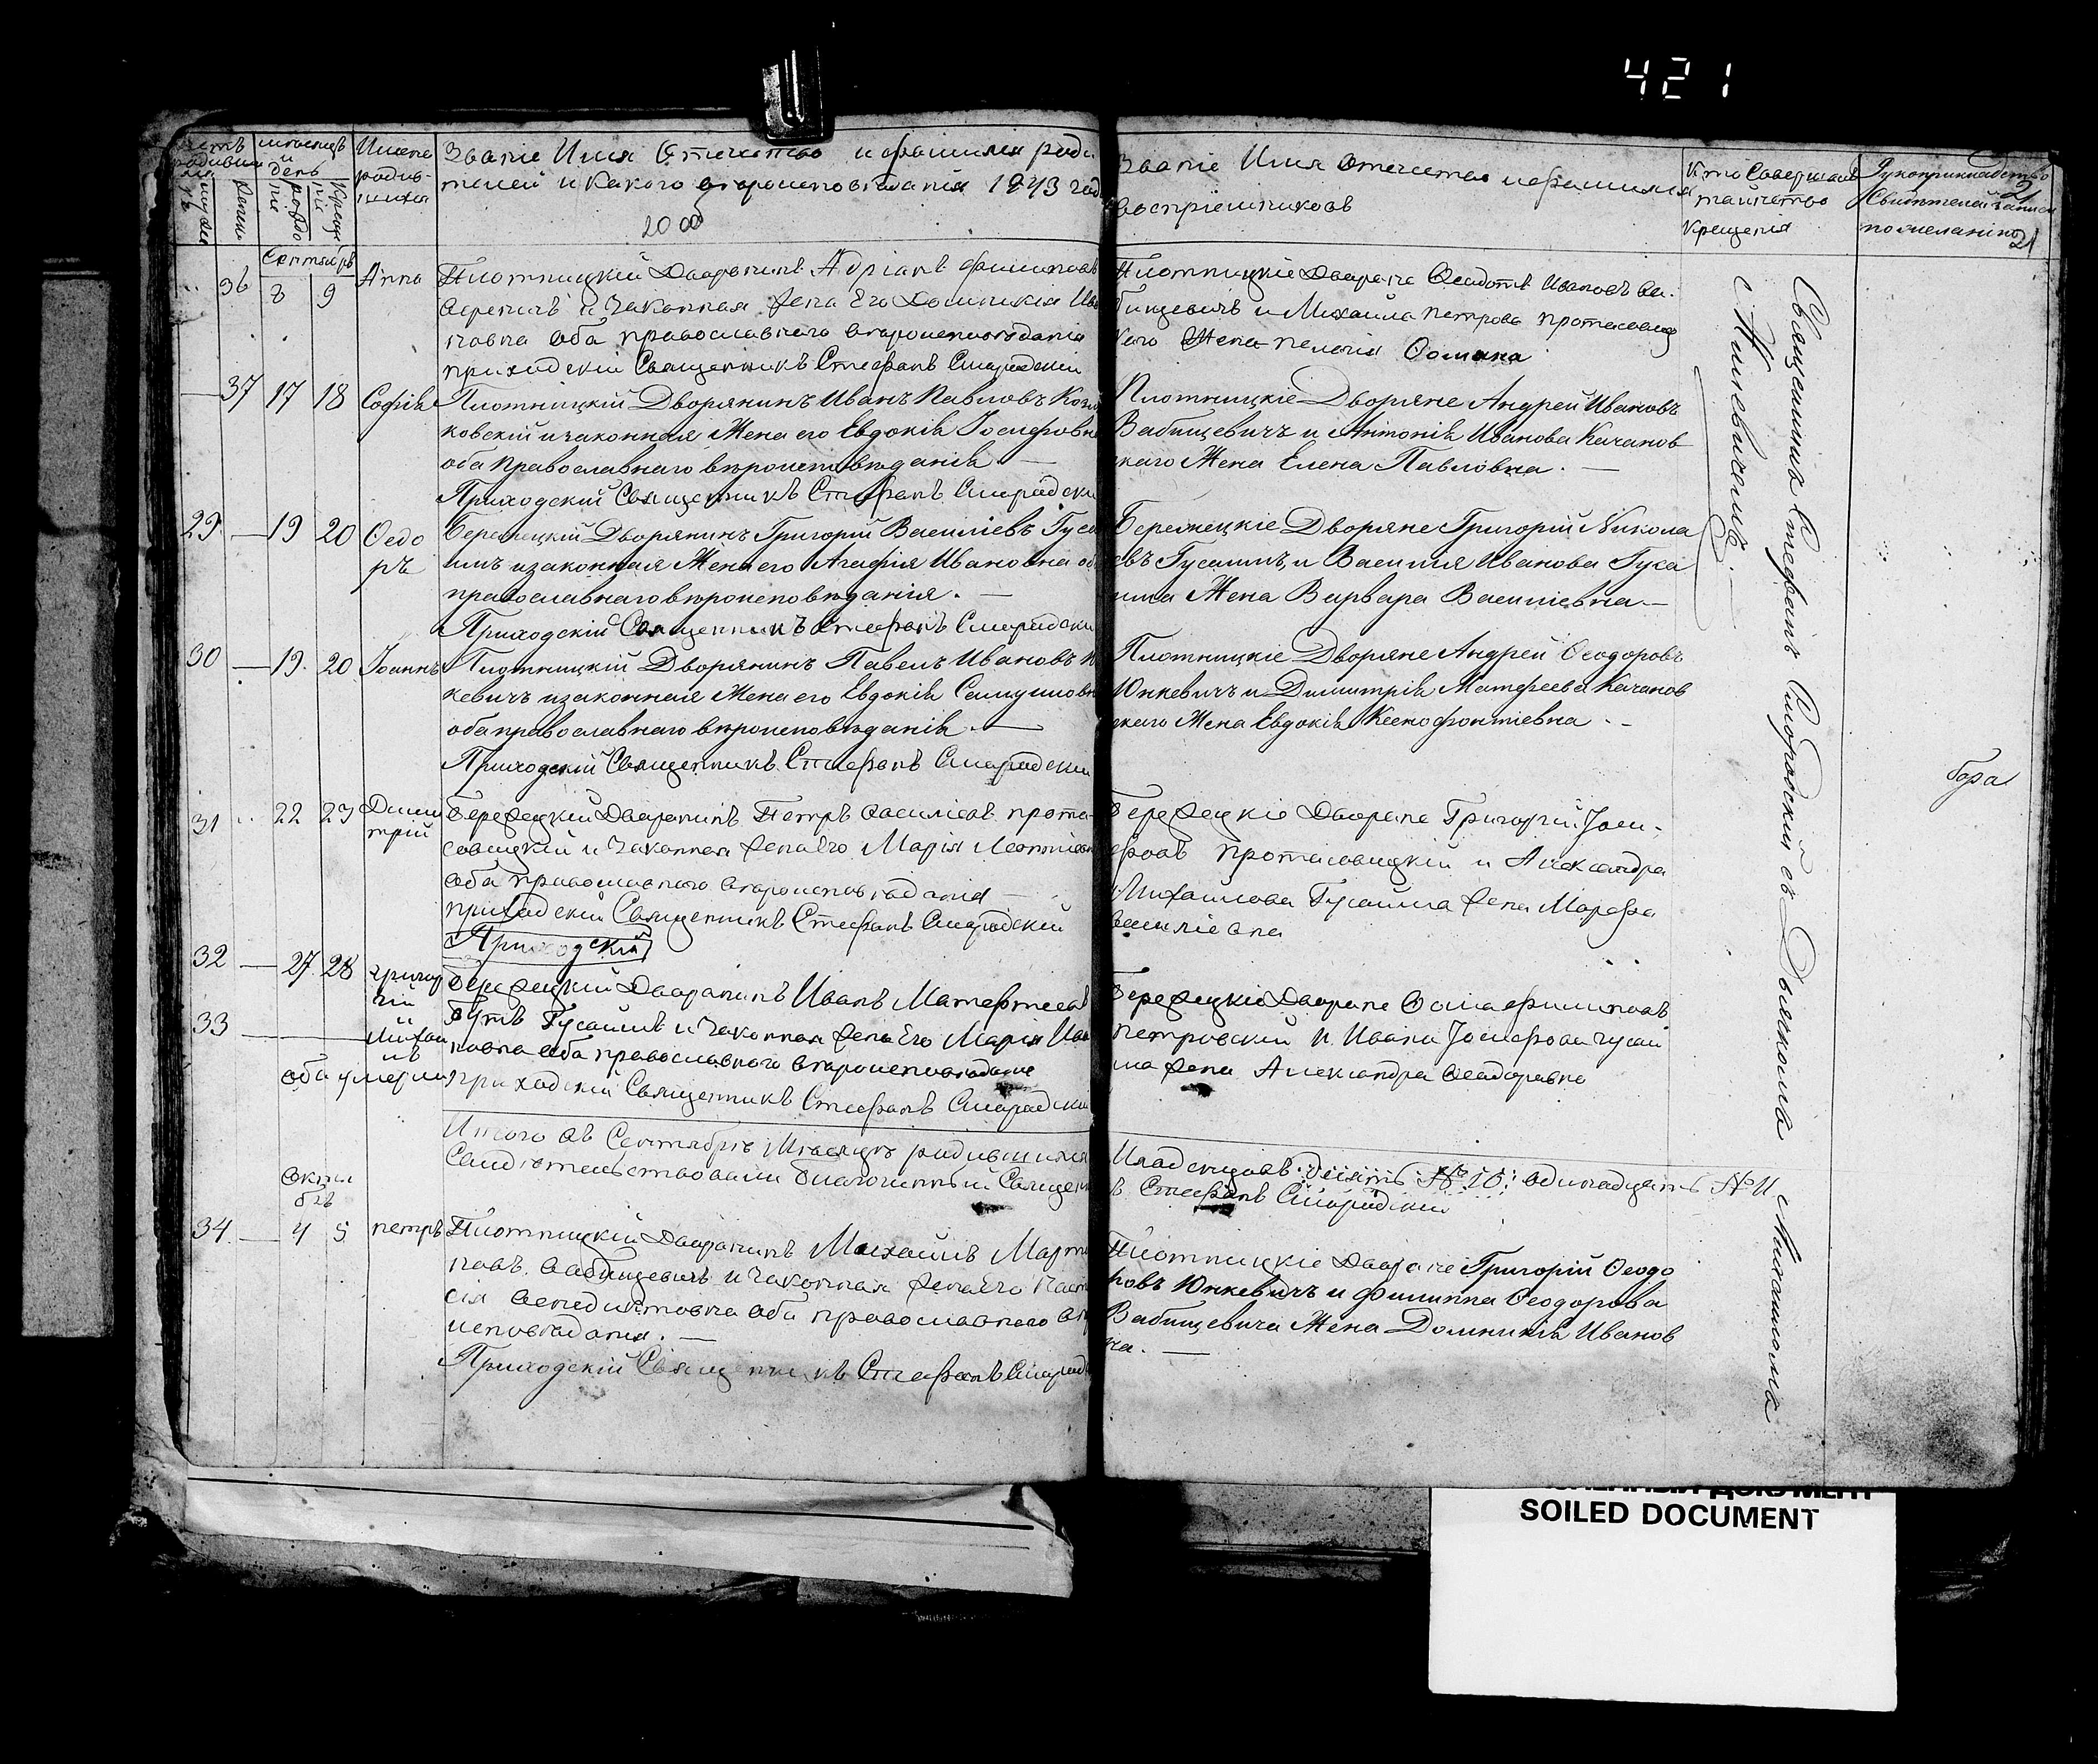 421
Счетъ родившихся
мужска
женска
мѣсяцъ и день
рожденія
крещенія
Имена родившихся
Званіе Имя Отечество и фамилия роди
телей и какого вѣроисповѣданія 1843 года
Званіе Имя Отечество и фамилия
воспріемниковъ
Кто Совершалъ
таинство
Крещенія
Рукоприкладство
Свидѣтелей записи
по желанію
21
Сентябрь
36 8 9 Анна
Плотницкій Дворянинъ Адріанъ Филиповъ
Вереничъ и законная жена Его Домникія Ива
новна оба православнаго вѣроисповѣданія
приходскій Священникъ Стефанъ Смородскій
Плотницкіе Дворяне Феодотъ Ивановъ Ва
бищевичъ и Михаила Петрова Протасовиц
каго Жена Пелагія Фомина
37 17 18 Софія
Плотницкій Дворянинъ Иванъ Павловъ
ковскій и законная Жена его Евдокія Іосифовна
оба Православнаго вѣроисповѣданія. —
Приходскій Священникъ Стефанъ Смородски
Плотницкіе Дворяне Андрей Ивановъ
Вабищевичъ и Антонія Иванова Качанов
скаго Жена Елена Павловна. —
29. — 19 20 Ѳедо
ръ
Бережецкій Дворянинъ Григорій Василіевъ Гуса
имъ и законная Жена его Агафія Ивановна об
православнаго вѣроисповѣданія. —
Приходскій Священникъ Стефанъ Смородски
Бережецкіе Дворяне Григорій Никола
евъ Гусаимъ, и Василія Иванова Гуса
има Жена Варвара Василіевна —
30 — 19. 20 Іоаннъ
Плотницкій Дворянинъ Павелъ Ивановъ Ю
кевичъ и законная Жена его Евдокія Самуиловн
оба православнаго вѣроисповѣданія. —
Приходскій Священникъ Стефанъ Смородски
Плотницкіе Дворяне Андрей Ѳеодоровъ
Юнкевичъ и Димитрія Матфеева Качанов
скаго Жена Евдокія Ксенофонтіевна. —
31 22 23 Дими
трій
Бережецкій Дворянинъ Петръ Василіевъ прота
совицкій и законная жена Его Марія Леонтіевн
оба православнаго вѣроисповѣданія —
приходскій Священникъ Стефанъ Смородскій
Приходскій
Бережецкіе Дворяне Григорій Іоси
фовъ протасовицкій и Александра
Михаилова Гусаима жена Марфа
Василіевна
32 — 27. 28 григор
ій
и
33 — Михаи
лъ
оба умерли
Бережецкій Дворянинъ Иванъ Матфеевъ
Бутъ Гусаимъ и законная жена Его Марія Ива
новна оба православного вѣроисповѣдание
приходскій Священникъ Стефанъ Смородски
Бережецкіе Дворяне Фома Филиповъ
Петровскій и Ивана Іосифова гусаи
ма жена Александра Феодоровна
Итого въ Сентябрѣ Мѣсяцѣ родившихся
Младенцовъ десять № 10: одинадцать № 11
Свидѣтельствовалъ благочинный Священник
ъ Стефанъ Смородскій
Октя
брь
34. — 4 5 петръ
Плотницкій Дворянинъ Михаилъ Марти
новъ Вабищевичъ и законная жена Его Наста
сія Венедиктовна оба православного вѣр
исповѣданія. —
Приходскій Священникъ Стефанъ Смород
Плотницкіе Дворяне Григорій Ѳеодо
ровъ Юнкевичъ и Филиппа Ѳеодорова
Вабищевича Жена Домникія Иванов
на. —
Священникъ Стефанъ Смородскій съ Дьячкомъ
Михаиломъ
SOILED DOCUMENT